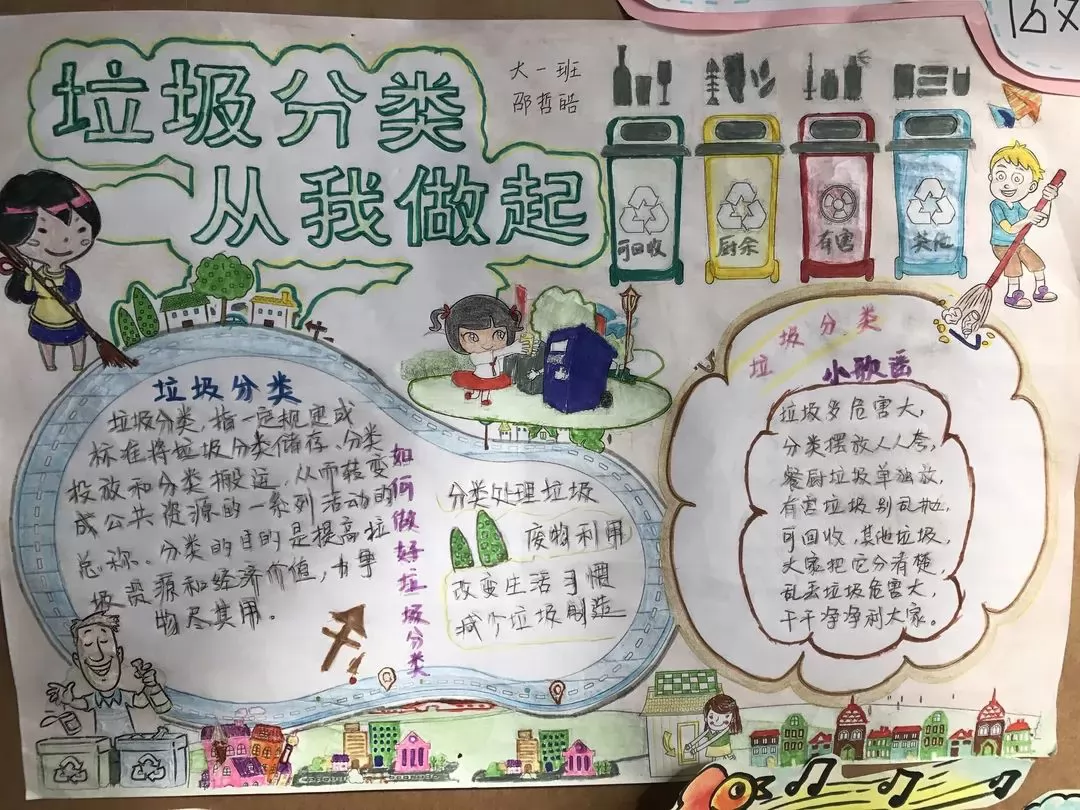 垃圾分类
从我做起
大一班
邵哲皓
可回收
厨余
有害
其他
垃圾分类
垃圾分类,指一定规定或
标准将垃圾分类储存、分类
投放和分类搬运,从而转变
成公共资源的一系列活动的
总称。分类的目的是提高垃
圾资源和经济价值,力争
物尽其用。
如何做好垃圾分类
分类处理垃圾
废物利用
改变生活习惯
减少垃圾制造
垃圾分类
小歌谣
垃圾多危害大,
分类摆放人人夸,
餐厨垃圾单独放,
有害垃圾别乱扔,
可回收,其他垃圾,
大家把它分有楚,
乱丢垃圾危害大,
干干净净利大家。